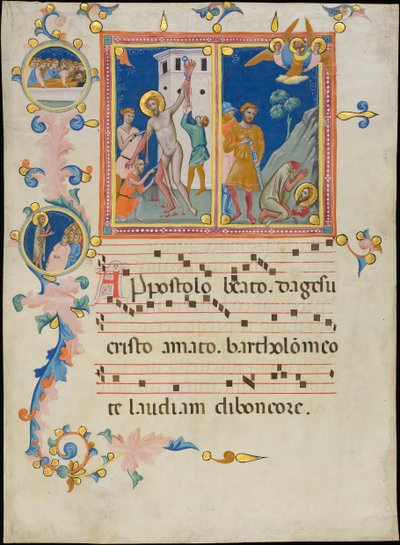 Appostolo beato. dagesu
cristo amato. bartholómeo
te laudiam diboncore.